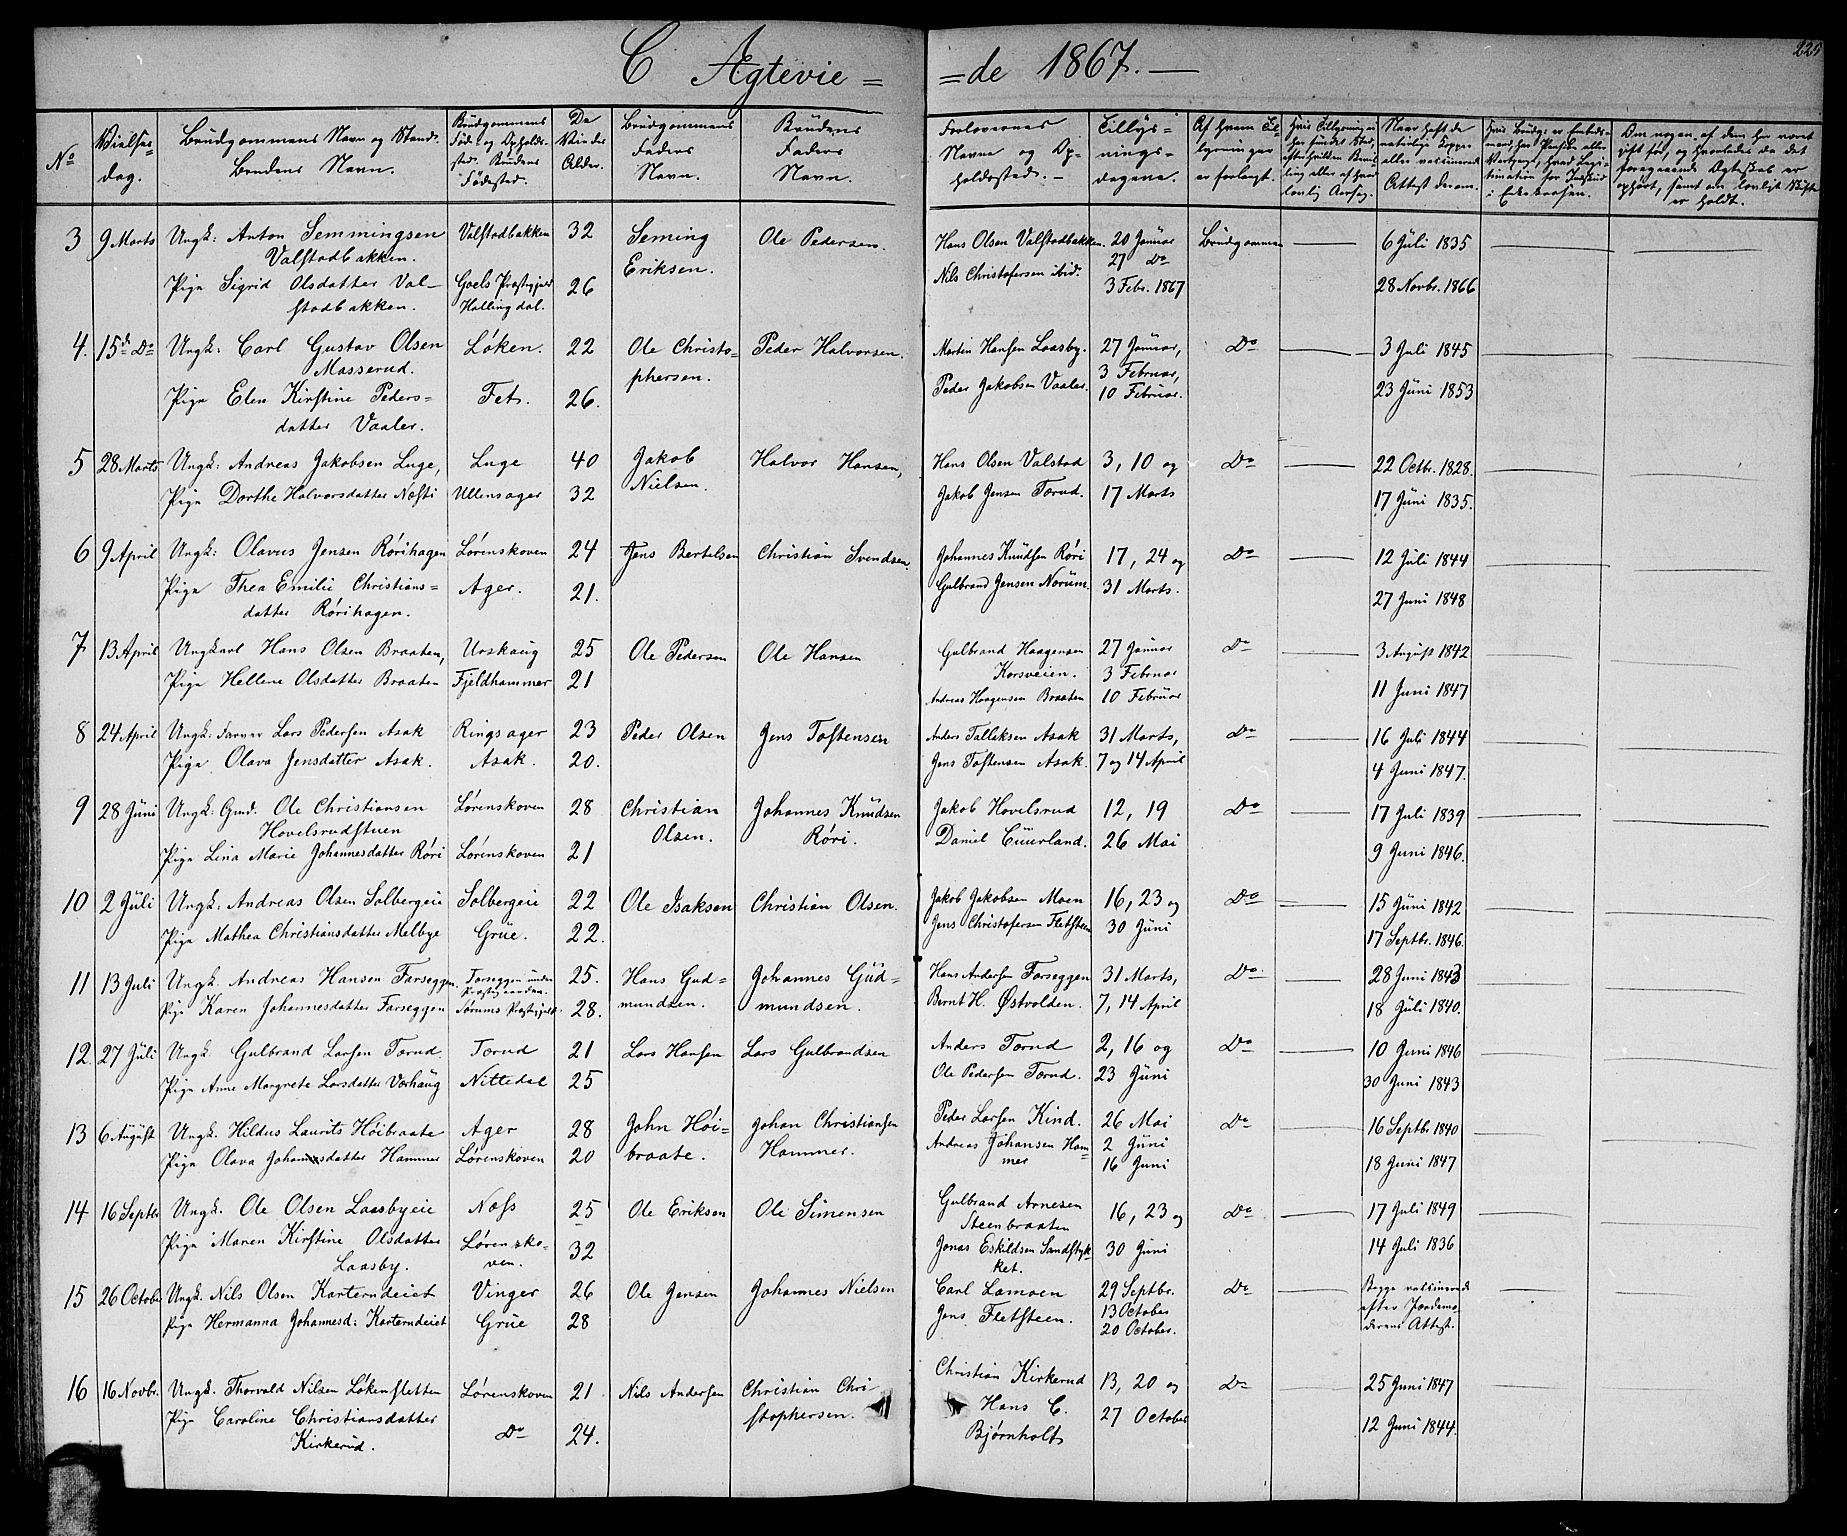 C Ægtevie=
=de 1867.—
229
No
Vielses-
dag.
Brudgommens Navn og Stand.
Brudens Navn.
Brudgommens
Føde- og Opholds-
sted. Brudens
Fødested.
De
Viedes
Alder.
Brudgommens
Faders
Navn.
Brudens
Faders
Navn.
Forlovernes
Navne og Op-
holdssted.
Tillys-
nings-
dagene.
Af hvem Til-
lysninger
er forlangt.
Naar havt de
naturlige Kopper
eller vaccinerede
Attest derom.
3 9 Marts Ungk: Anton Semmingsen Valstadbakken 32 Seming Ole Pedersen. Hans Olsen Valstadbakken. 20 Januar Brudgommen 6 Juli 1835
Valstadbakken. Eriksen. 27 Do
Pige Sigrid Olsdatter Val- Goels Præstegjeld 26 Nils Christofersen ibid. 3 Febr. 1867 28 Novbr. 1866
stadbakken. Hallingdal.
4. 15de Do Ungk: Carl Gustav Olsen Løken. 22 Ole Christo- Peder Halvorsen. Martin Hansen Laasby. 27 Januar, Do 3 Juli 1845
Masserud. phersen. 3 Februar,
Pige Elen Kirstine Peders= Fet. 26. Peder Jakobsen Vaaler. 10 Februar. 23 Juni 1853
datter Vaaler.
5 28 Marts Ungk: Andreas Jakobsen Luge, Luge 40 Jakob Halvor Hansen, Hans Olsen Valstad 3, 10 og Do 22 Octbr. 1828.
Pige Dorthe Halvorsdatter Nosti Ullensager 32 Nielsen. Jakob Jensen Torud. 17 Marts 17 Juni 1835.
6 9 April Ungk: Olavus Jensen Rørihagen Lørenskoven 24 Jens Bertelsen Christian Svendsen. Johannes Knudsen Røri 17, 24 og Do 12 Juli 1844
Pige Thea Emilie Christians= Ager. 21. Gulbrand Jensen Norum. 31 Marts. 27 Juni 1848
datter Rørihagen.
7 13 April Ungkarl Hans Olsen Braaten, Urskoug 25 Ole Pedersen Ole Hansen Gulbrand Haagensen 27 Januar Do 3 August 1842
Korsveien. 3 Februar
Pige Hellene Olsdatter Braaten Fjeldhammer 21 Andreas Haagensen Braaten 10 Februar 11 Juni 1847
8 24 April Ungk: Farver Lars Pedersen Asak Ringsager 23 Peder Olsen Jens Toftensen Anders Tolleksen Asak 31 Marts, Do 16 Juli 1844
Pige Olava Jensdatter Asak. Asak. 20. Jens Toftensen Asak. 7 og 14 April 4 Juni 1847.
9 28 Juni Ungk. Gmd. Ole Christiansen Lørenskoven 28 Christian Johannes Knudsen Jakob Hovelsrud 12, 19 Do 17 Juli 1839
Hovelsrudstuen Olsen. Røri. Daniel Cuurland. 26 Mai
Pige Lina Marie Johannesdatter Røri Lørenskoven 21 9 Juni 1846.
10 2 Juli Ungk. Andreas Olsen Solbergeie Solbergeie 22 Ole Isaksen Christian Olsen. Jakob Jakobsen Moen 16, 23 og Do 15 Juni 1842
Pige Mathea Christiansdatter Melbye Grue. 22. Jens Christofersen Fletsteen 30 Juni 17 Septbr. 1846.
11 13 Juli Ungk. Andreas Hansen Farseggen. Farseggen under 25. Hans Gud= Johannes Gud= Hans Andersen Farseggen 31 Marts, Do 28 Juni 1843
Præstegaarden.
Pige Karen Johannesdatter Farseggen Sørums Præstegjeld. 28. mundsen. mundsen. Bernt H. Østvolden. 7, 14 April 18 Juli 1840.
12. 27 Juli Ungk Gulbrand Larsen Torud. Torud 21 Lars Hansen Lars Gulbrandsen Anders Torud 2, 16 og Do 10 Juni 1846
Pige Anne Margrete Larsdatter Varhaug Nittedal 25 Ole Pedersen Torud. 23 Juni 30 Juni 1843
13 6 August Ungk. Hildus Laurits Høibraate Ager 28 John Høi= Johan Christiansen Peder Larsen Kind. 26 Mai Do 16 Septb. 1840
Pige Olava Johannesdatter Hammer Lørenskoven 20 braate. Hammer. Andreas Johansen Ham= 2 Juni
mer 16 Juni 18 Juni 1847
14 16 Septbr Ungk. Ole Olsen Laasbyeie Næss 25 Ole Eriksen Ole Simensen Gulbrand Arnesen 16, 23 og Do 17 Juli 1849
Steenbraaten
Pige Maren Kirstine Olsdatter Lørensko- 32 Jonas Eskildsen Sandstyk- 30 Juni 14 Juli 1836
Laasby. ven. ket.
15 26 October Ungk. Nils Olsen Karterudeiet Vinger 26 Ole Jensen Johannes Nielsen Carl Lamoen 29 Septbr. Do Begge vaccinerede
Pige Hermanna Johannesd: Karterudeiet Grue 28 Jens Fletsteen. 13 October efter Jordemo
20 October. derens Attest.
16 16 Novbr. Ungk. Thorvald Nilsen Løkensletten Lørenskoven 21 Nils Andersen Christian Chri- Christian Kirkerud 13, 20 og Do 25 Juni 1847
Pige Caroline Christiansdatter Do 24. stophersen. Hans C. 27 October 12 Juni 1844.
Kirkerud. Bjørnholt